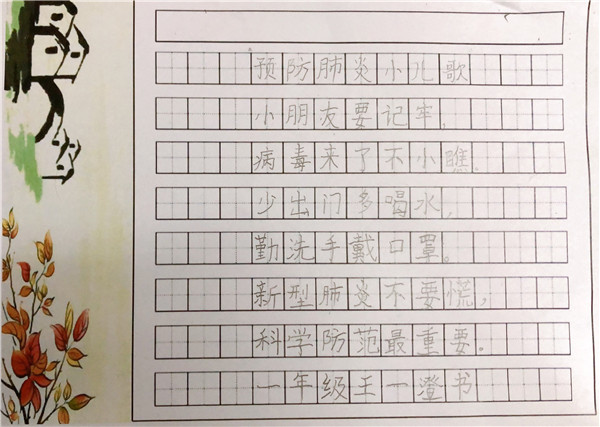 预防肺炎小儿歌
小朋友要记牢,
病毒来了不小瞧.
少出门多喝水,
勤洗手戴口罩。
新型肺炎不要慌,
科学防范最重要.
一年级王一澄书